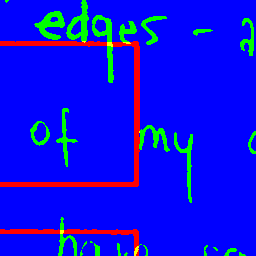 edges - a
of my
have